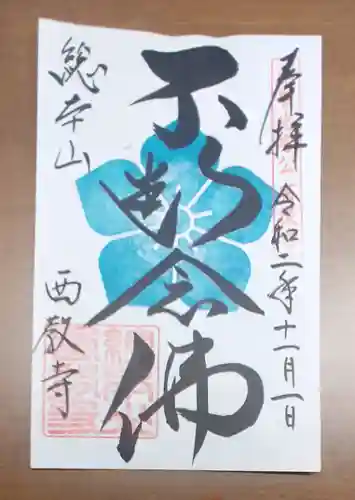 奉拝
令和二年十一月一日
不断念佛
総本山
西教寺